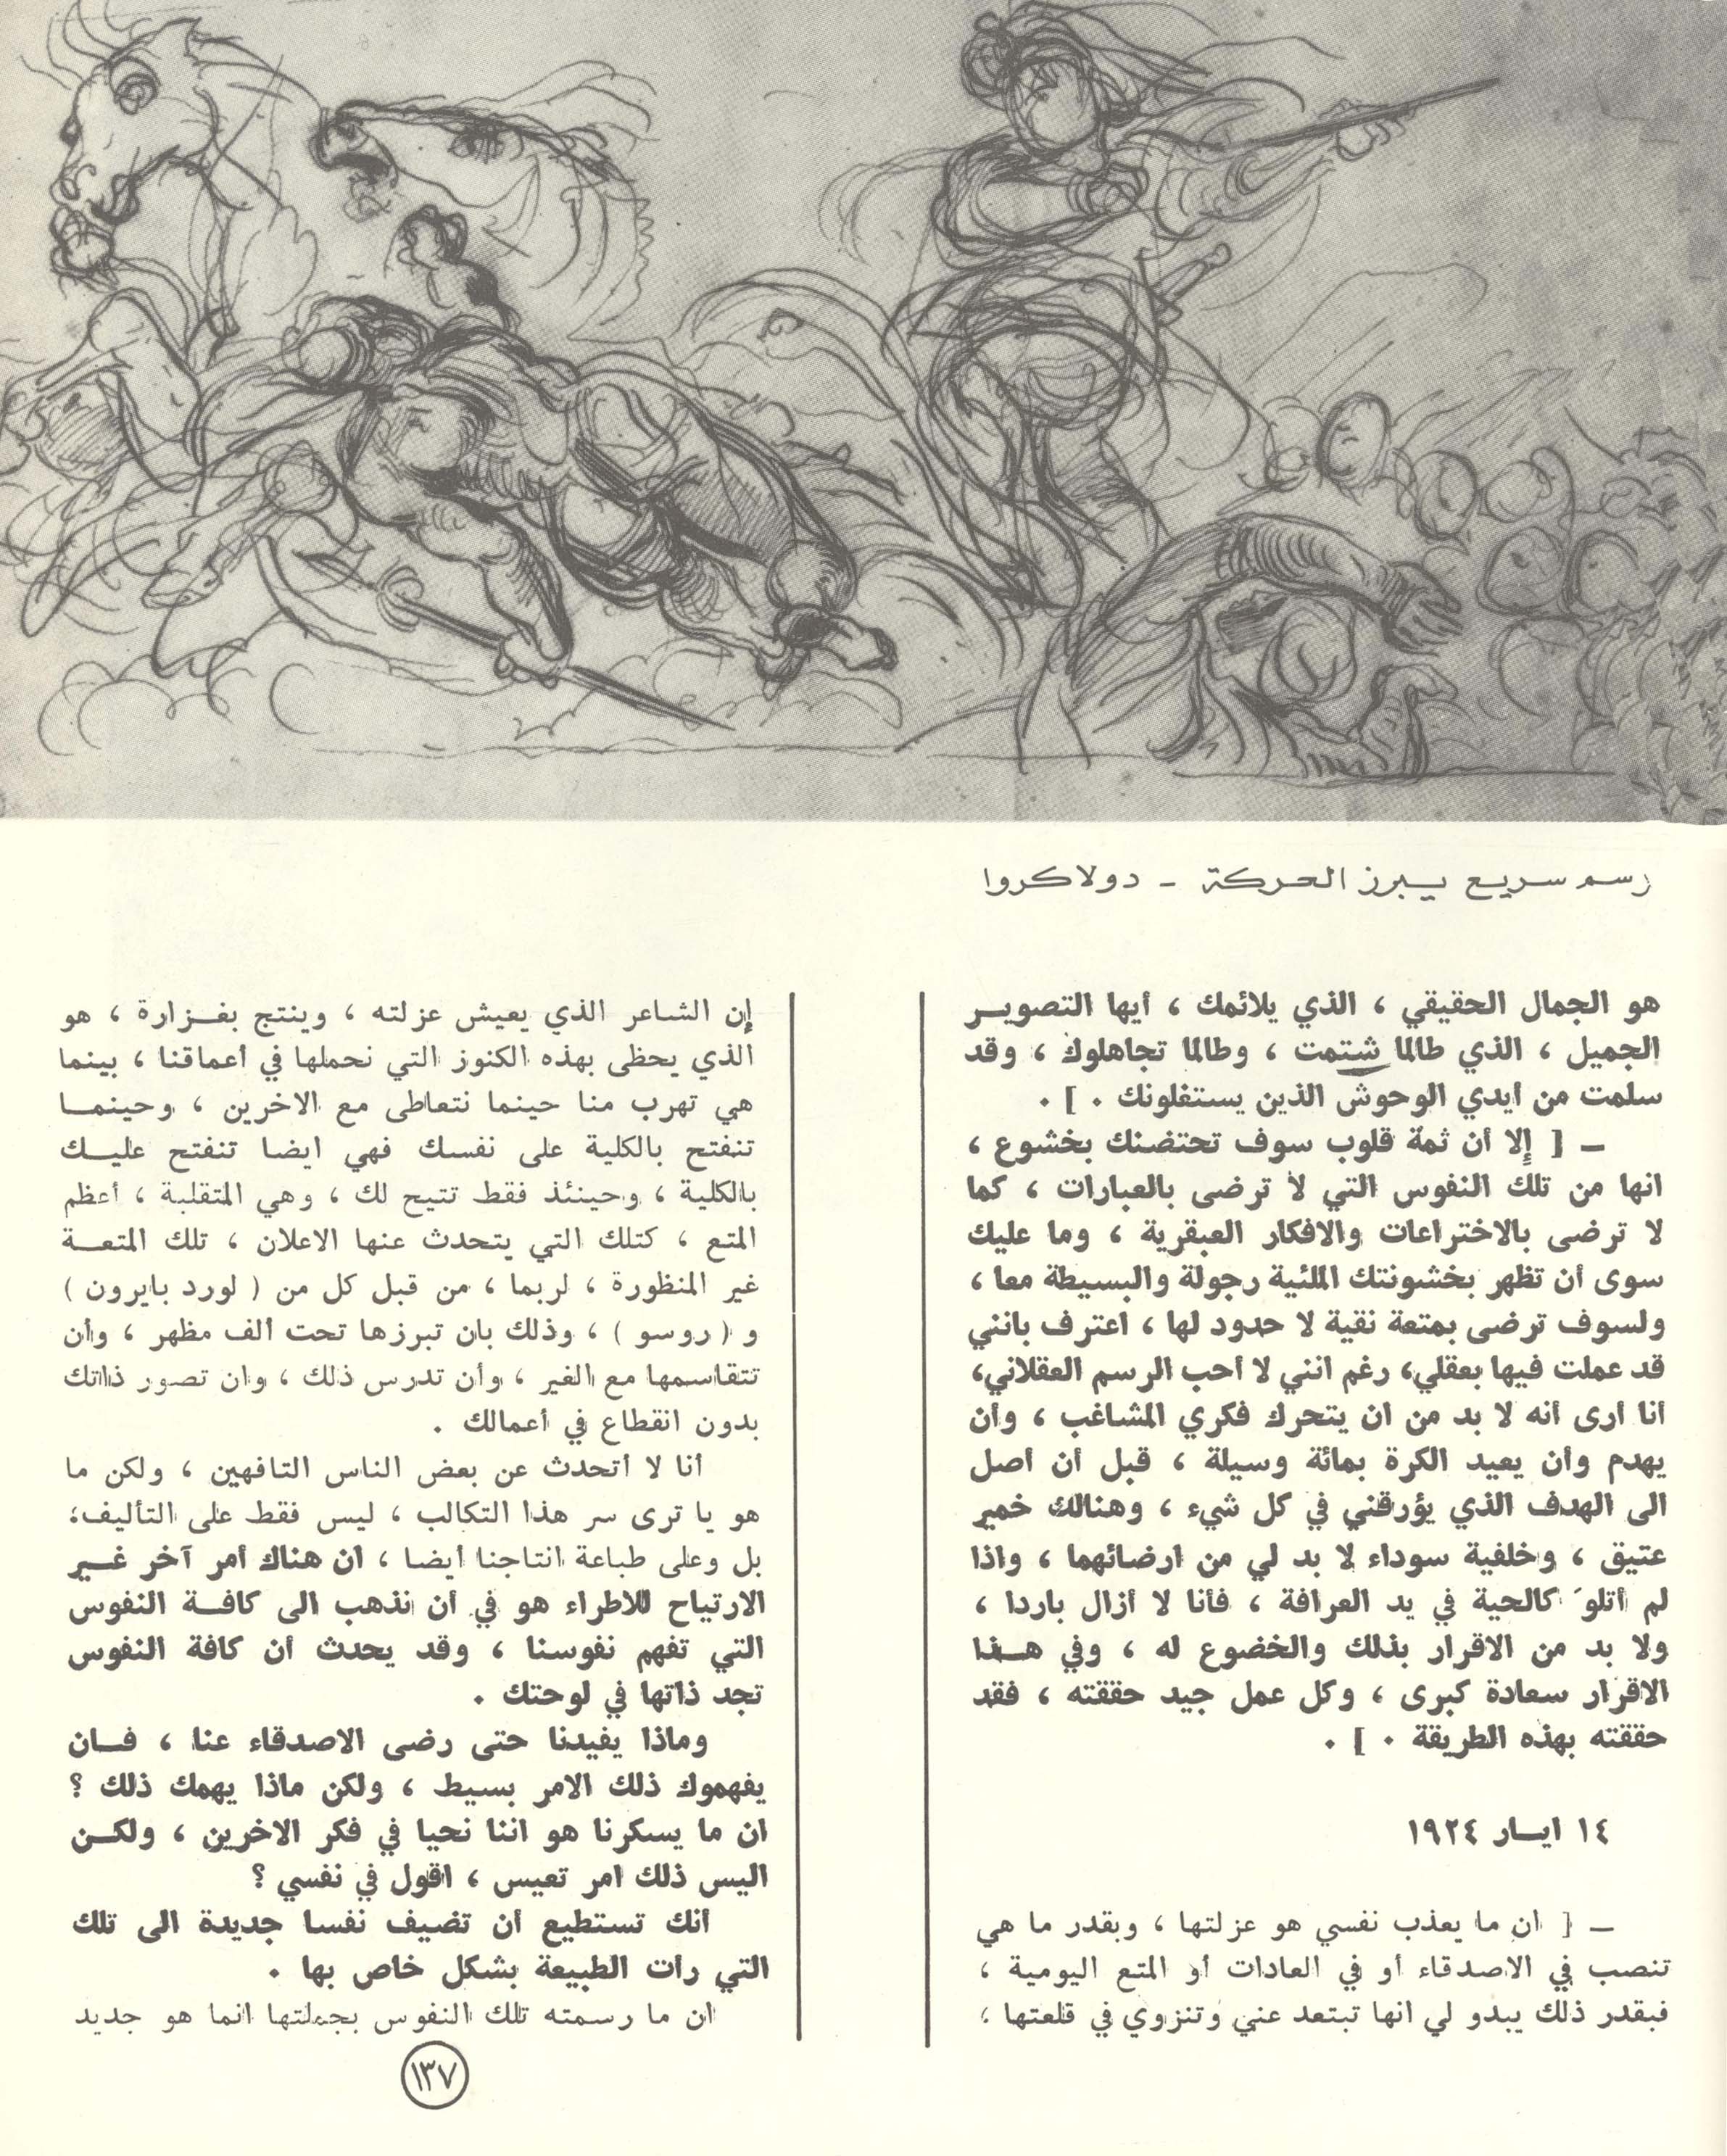 رسم سريع يبرز الحركة - دولاكروا
هو الجمال الحقيقي ، الذي يلائمك ، أيها التصويـر
الجميل ، الذي طالما شتمت ، وطالما تجاهلوك ، وقد
سلمت من أيدي الوحوش الذين يستغلونك . ] .
ـ [ إلا أن ثمة قلوب سوف تحتضنك بخشوع ،
انها من تلك النفوس التي لا ترضى بالعبارات ، كما
لا ترضى بالاختراعات والافكار العبقرية ، وما عليك
سوى أن تظهر بخشونتك الملئية رجولة والبسيطة معا ،
ولسوف ترضى بمتعة نقية لا حدود لها ، اعترف بانني
قد عملت فيها بعقلي، رغم انني لا أحب الرسم العقلاني،
انا أرى أنه لا بد من ان يتحرك فكري المشاغب ، وأن
يهدم وأن يعيد الكرة بمائة وسيلة ، قبل أن أصل
الى الهدف الذي يؤرقني في كل شيء ، وهنالك خمير
عتيق ، وخلفية سوداء لا بد لي من ارضائهما ، واذا
لم أتلوَ كالحية في يد العرافة ، فأنا لا أزال باردا ،
ولا بد من الاقرار بذلك والخضوع له ، وفي هـذا
الاقرار سعادة كبرى ، وكل عمل جيد حققته ، فقد
حققته بهذه الطريقة . ] .
١٤ ايـار ١٩٢٤
ـ [ ان ما يعذب نفسي هو عزلتها ، وبقدر ما هي
تنصب في الاصدقاء أو في العادات أو المتع اليومية ،
فبقدر ذلك يبدو لي انها تبتعد عني وتنزوي في قلعتها ،
إن الشاعر الذي يعيش عزلته ، وينتج بغـزارة ، هو
الذي يحظى بهذه الكنوز التي نحملها في أعماقنا ، بينما
هي تهرب منا حينما نتعاطى مع الاخرين ، وحينمـا
تنفتح بالكلية على نفسك فهي ايضا تنفتح عليـك
بالكلية ، وحينئذ فقط تتيح لك ، وهي المتقلبة ، أعظم
المتع ، كتلك التي يتحدث عنها الاعلان ، تلك المتعـة
غير المنظورة ، لربما ، من قبل كل من ( لورد بايرون )
و ( روسو ) ، وذلك بان تبرزها تحت ألف مظهر ، وأن
تتقاسمها مع الغير ، وأن تدرس ذلك ، وان تصور ذاتك
بدون انقطاع في أعمالك .
أنا لا أتحدث عن بعض الناس التافهين ، ولكن ما
هو يا ترى سر هذا التكالب ، ليس فقط على التأليف،
بل وعلى طباعة انتاجنا أيضا ، ان هناك أمر آخر غـير
الارتياح للاطراء هو في أن نذهب الى كافـة النفوس
التي تفهم نفوسنا ، وقد يحدث أن كافة النفوس
تجد ذاتها في لوحتك .
وماذا يفيدنا حتى رضى الاصدقاء عنا ، فـان
يفهموك ذلك الامر بسيط ، ولكن ماذا يهمك ذلك ؟
ان ما يسكرنا هو اننا نحيا في فكر الاخرين ، ولكـن
اليس ذلك امر تعيس ، اقول في نفسي ؟
أنك تستطيع أن تضيف نفسا جديدة الى تلك
التي رأت الطبيعة بشكل خاص بها .
ان ما رسمته تلك النفوس بجملتها انما هو جديد
١٣٧